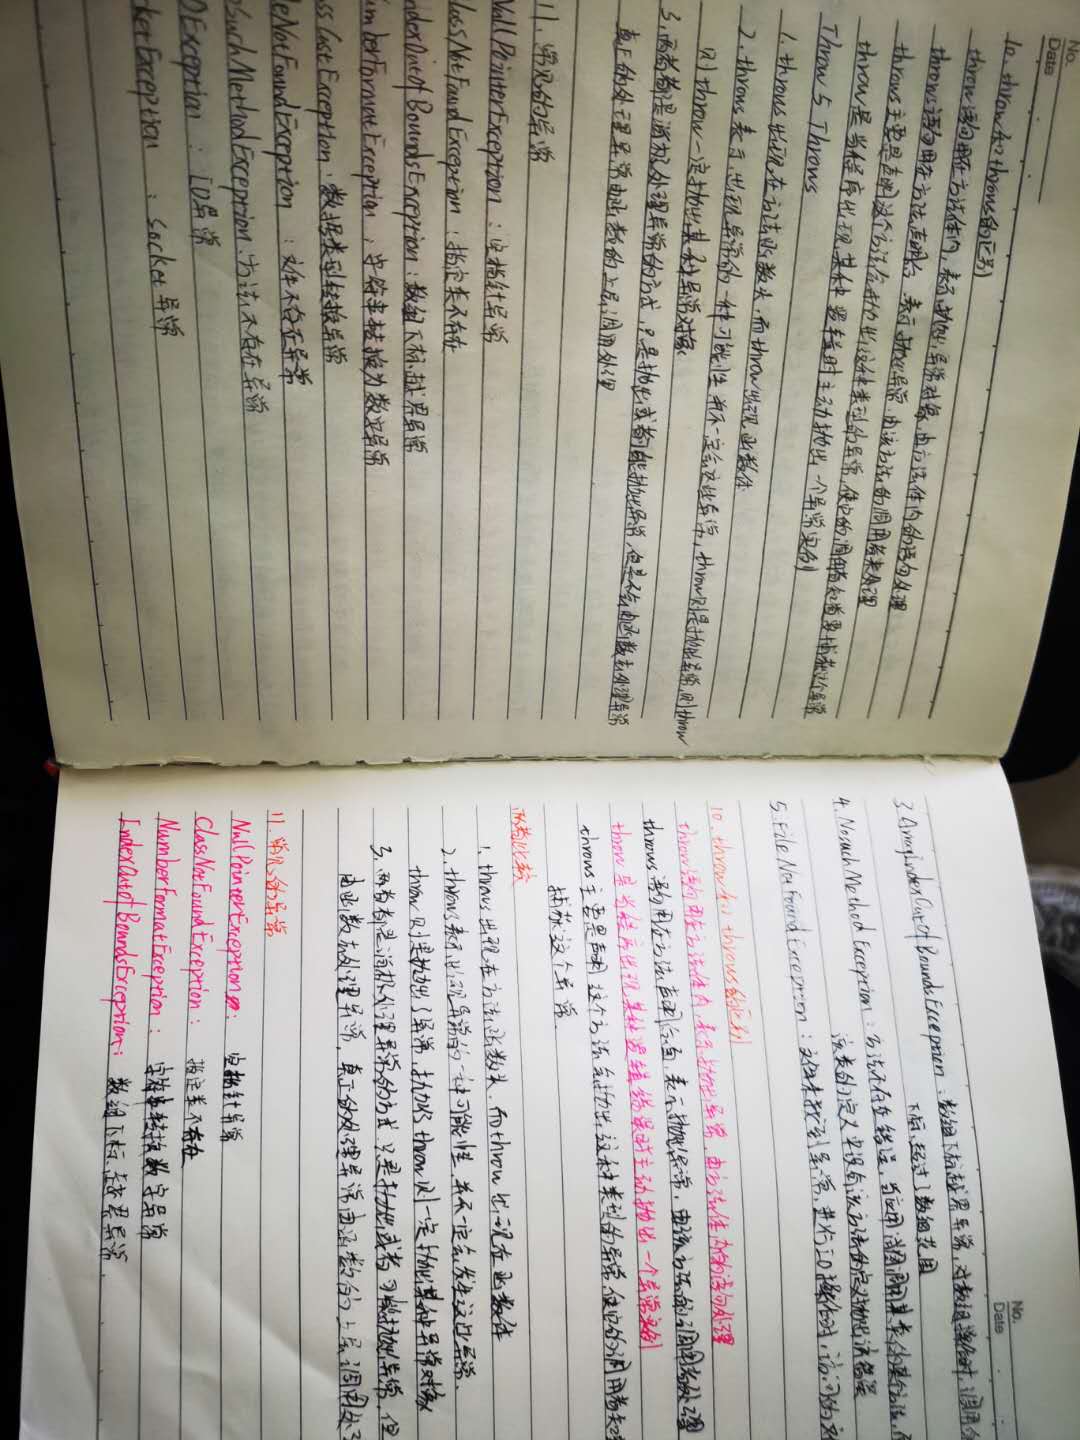 No.
Date
10. throw和throws的区别
throw语句用在方法体内,表示抛出异常对象,由方法体内的语句处理
throws语句用在方法声明后,表示抛出异常,由该方法的调用者来处理
throws主要是声明这个方法会抛出这种类型的异常,使它的调用者知道要捕获这个异常
throw是当程序出现某种逻辑错误时主动抛出一个异常实例
Throw与Throws
1. throws出现在方法函数头,而throw出现函数体
2. throws表示出现异常的一种可能性,并不一定会这些异常,throw则是抛出异常,则throw
则throw一定抛出某种异常对象
3. 两者都是消极处理异常的方式,只是抛出或者可能抛出异常,但是不会由函数去处理异常
真正的处理异常由函数的上层调用处理
11. 常见的异常
NullPointerException:空指针异常
ClassNotFoundException:指定类不存在
IndexOutOfBoundsException:数组下标越界异常
NumberFormatException:字符串转换为数字异常
ClassCastException:数据类型转换异常
FileNotFoundException:文件不存在异常
NoSuchMethodException:方法不存在异常
IOException:IO异常
SocketException:Socket异常
No.
Date
3. ArrayIndexOutOfBoundsException:数组下标越界异常,对数组操作时,调用的
下标超过了数组范围
4. NosuchMethodException:方法不存在错误,当应用试图调用某类的某个方法,而
该类的定义中没有该方法的定义抛出该错误
5. FileNotFoundException:文件未找到异常,进行IO操作时,访问的文
10. throw和throws的区别
throw语句用在方法体内,表示抛出异常,由方法体内的语句处理
throws语句用在方法声明后面,表示抛出异常,由该方法的调用者处理
throw是当程序出现某种逻辑错误时主动抛出一个异常实例
throws主要是声明这个方法会抛出这种类型的异常,使它的调用者知道
捕获这个异常.
两者比较
1. throws出现在方法函数头,而throw出现在函数体
2. throws表示出现异常的一种可能性,并不一定会发生这些异常.
throw则是抛出了异常,执行throw则一定抛出某种异常对象
3. 两者都是消极处理异常的方式,只是抛出或者可能抛出异常,但
由函数去处理异常,真正的处理异常由函数的上层调用处
11. 常见的异常
NullPointerException:空指针异常
ClassNotFoundException:指定类不存在
NumberFormatException:字符串转换数字异常
IndexOutOfBoundsException:数组下标越界异常